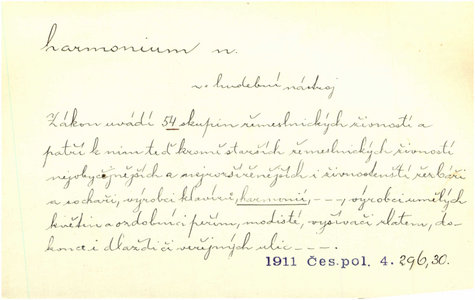 harmonium n.
v. hudební nástroj
Zákon uvádí 54 skupin řemeslnických živností a
patří k nim teď kromě starších řemeslnických živností
nejobyčejnějších a nejrozšířenějších i živnostenští řezbáři
a sochaři, výrobci klavírů, harmonií, – – –, výrobci umělých
květin a ozdobníci peřím, modisté, vyšívači zlatem, do-
konce i dlaždiči veřejných ulic – – – .
1911 Čes.pol. 4. 296,30.